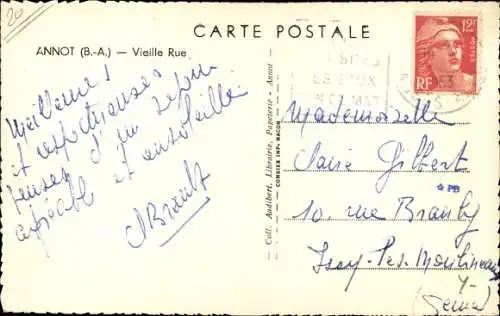 20
CARTE POSTALE
ANNOT (B.-A.) — Vieille Rue
12F
POSTES
RF
Meilleures
et respectueuses
pensées d'un séjour
agréable et ensoleillé.
ABrault
Coll. Audibert, Librairie, Papeterie - Annot
COMBIER IMP. MACON
Mademoiselle
Claire Gilbert
★PB
10. rue Branly
Issy-les-Moulineaux
(Seine)